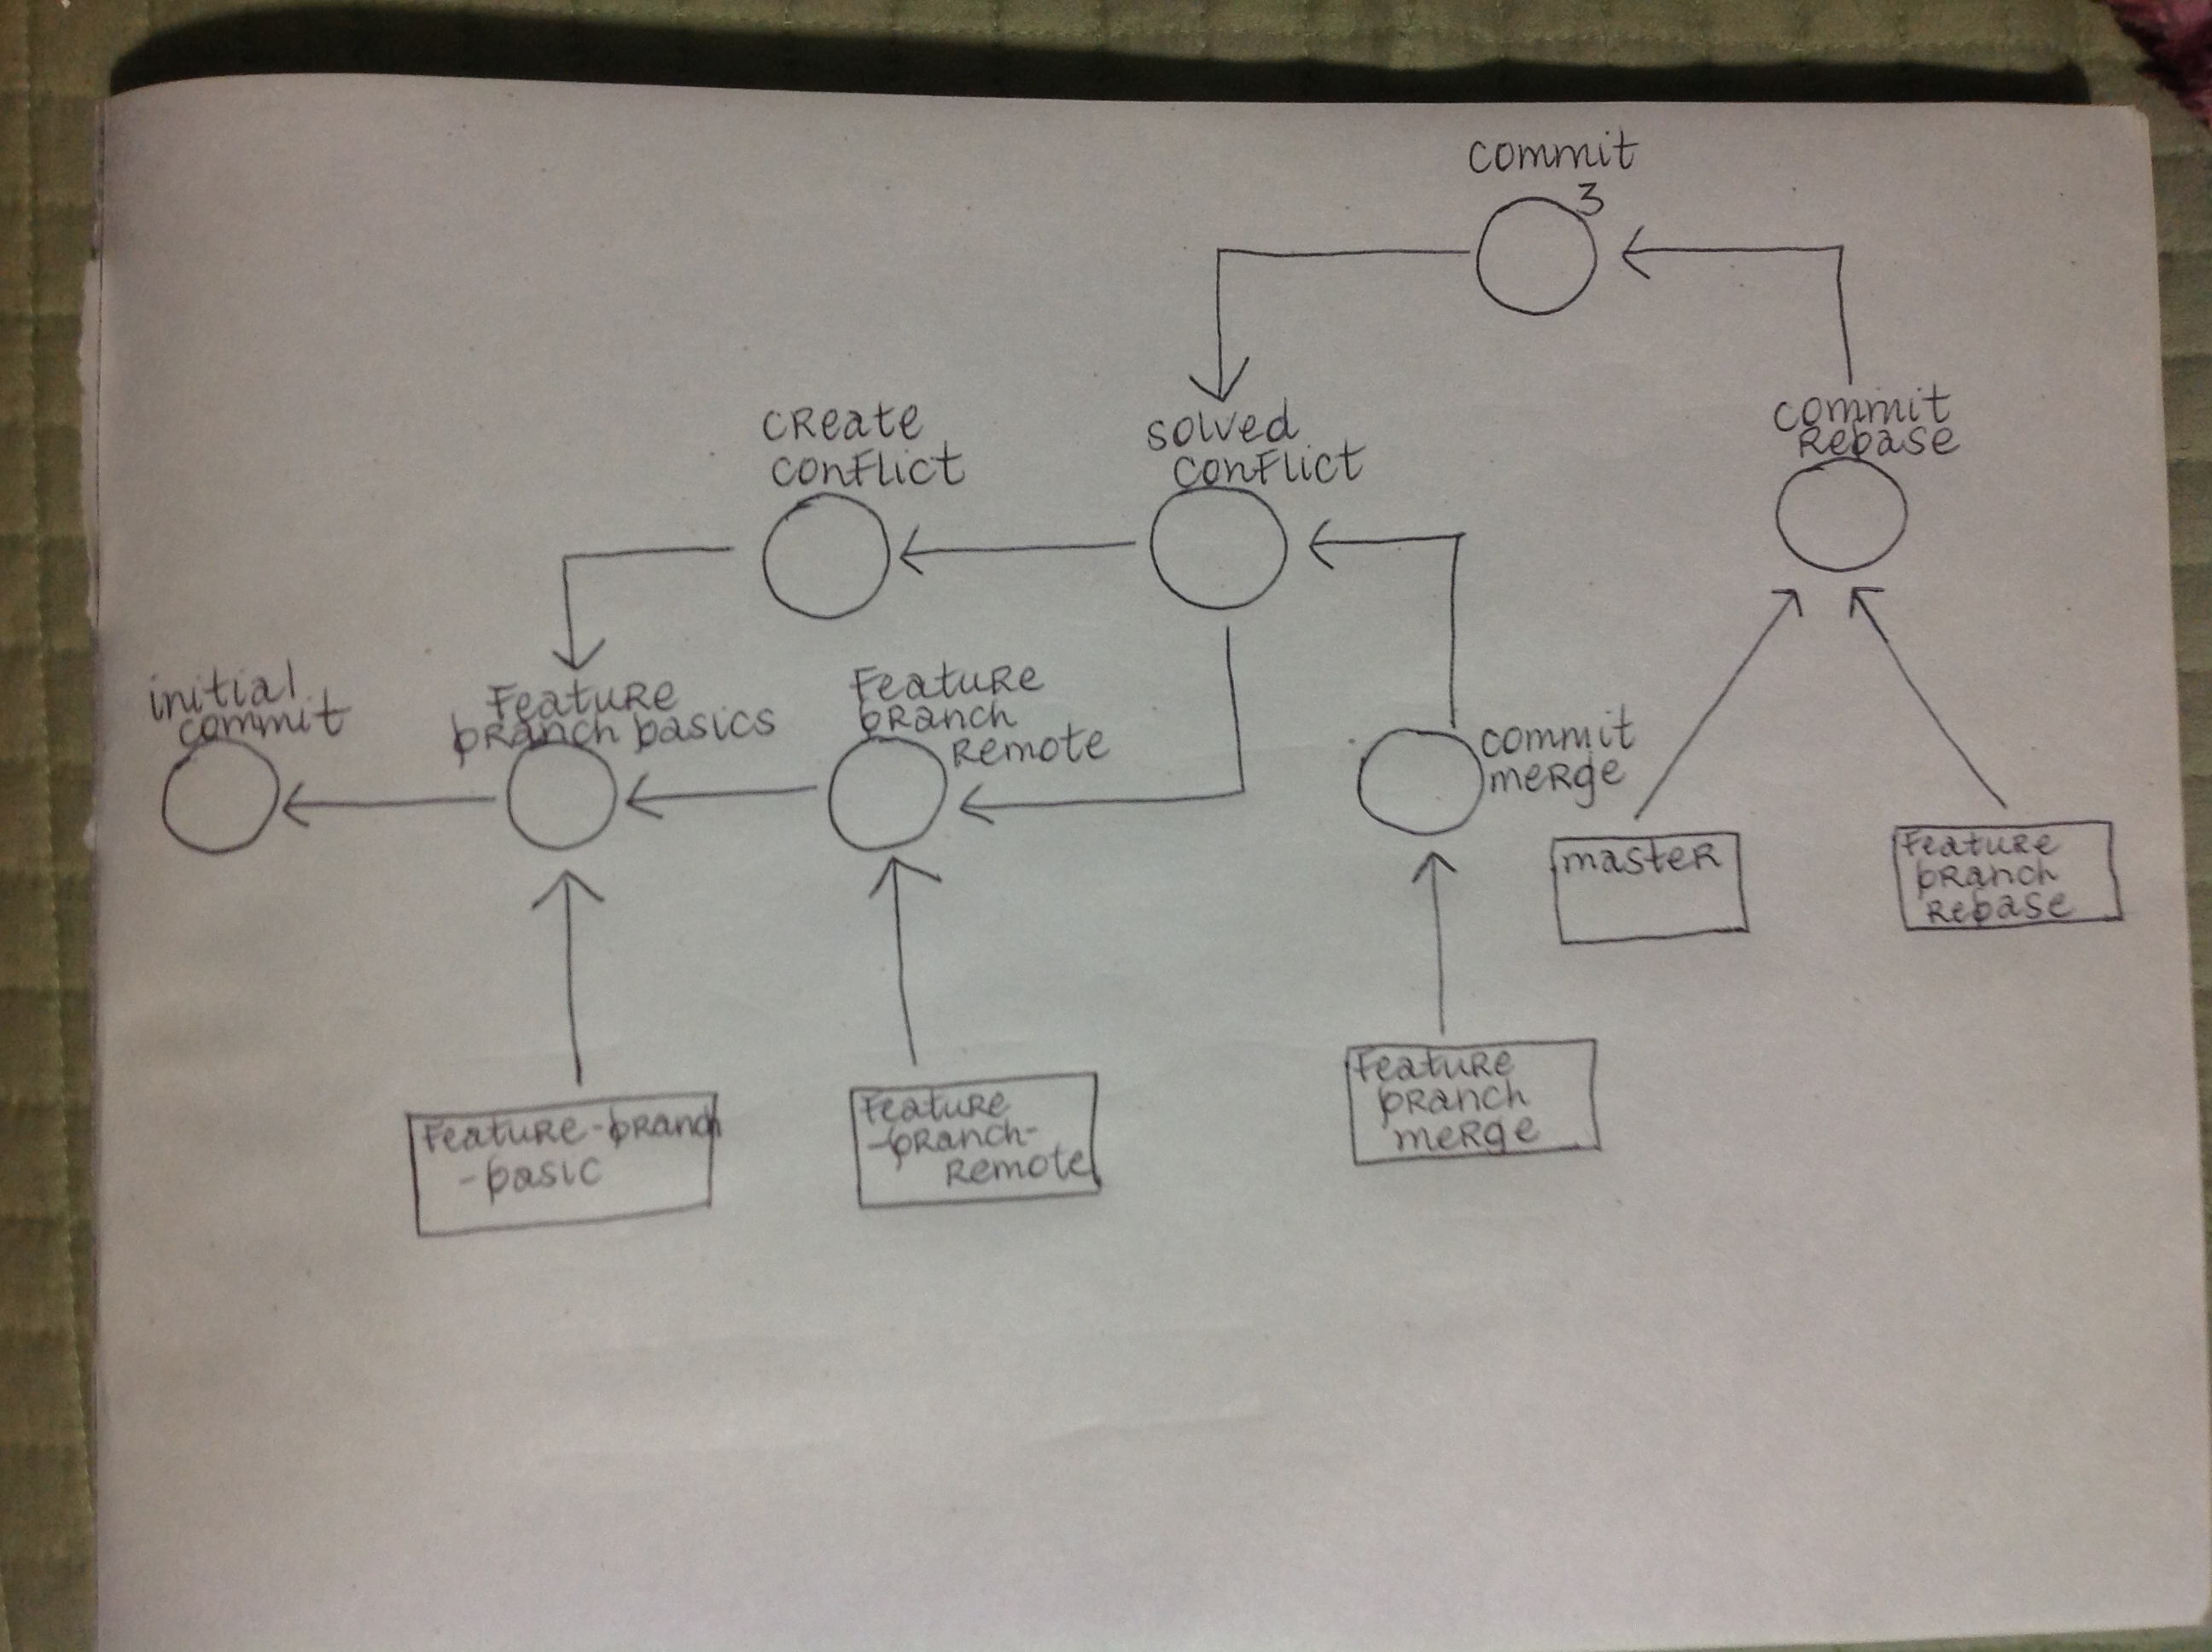 commit
3
create
conflict
solved
conflict
commit
Rebase
initial
commit
Feature
branch basics
Feature
branch
Remote
commit
merge
master
Feature
branch
Rebase
Feature-branch
-basic
Feature
-branch-
Remote
Feature
branch
merge